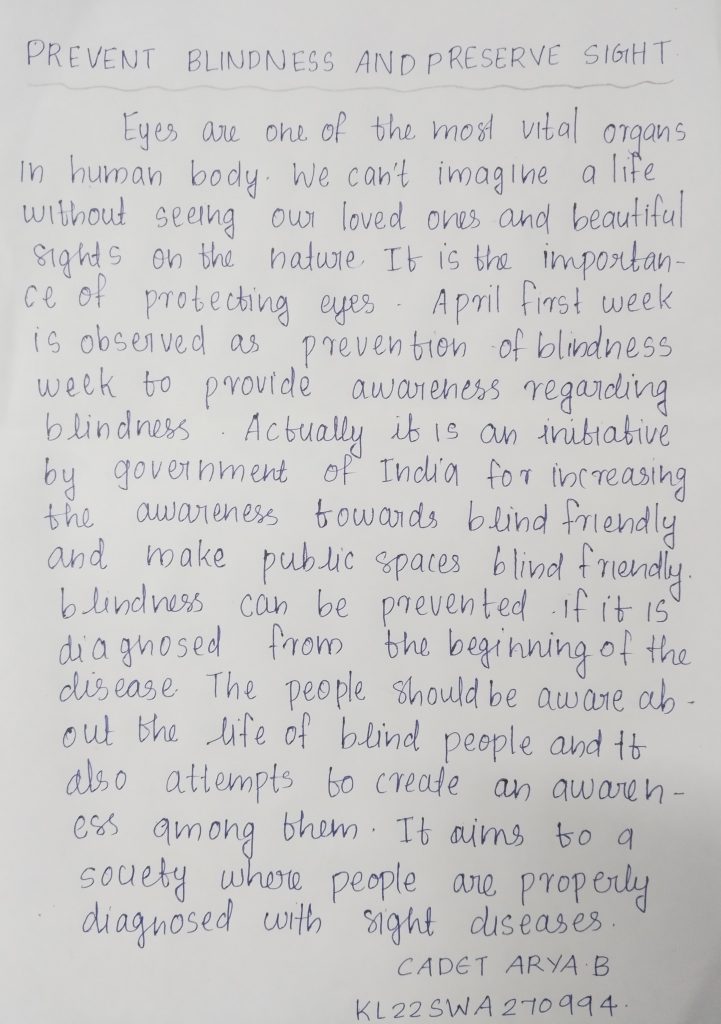 PREVENT BLINDNESS AND PRESERVE SIGHT
Eyes are one of the most vital organs
in human body. We can't imagine a life
without seeing our loved ones and beautiful
sights on the nature. It is the importan-
ce of protecting eyes. April first week
is observed as prevention of blindness
week to provide awareness regarding
blindness. Actually it is an initiative
by government of India for increasing
the awareness towards blind friendly
and make public spaces blind friendly.
blindness can be prevented. if it is
diagnosed from the beginning of the
disease. The people should be aware ab-
out the life of blind people and it
also attempts to create an awaren-
ess among them. It aims to a
society where people are properly
diagnosed with sight diseases.
CADET ARYA B
KL22SWA270994.